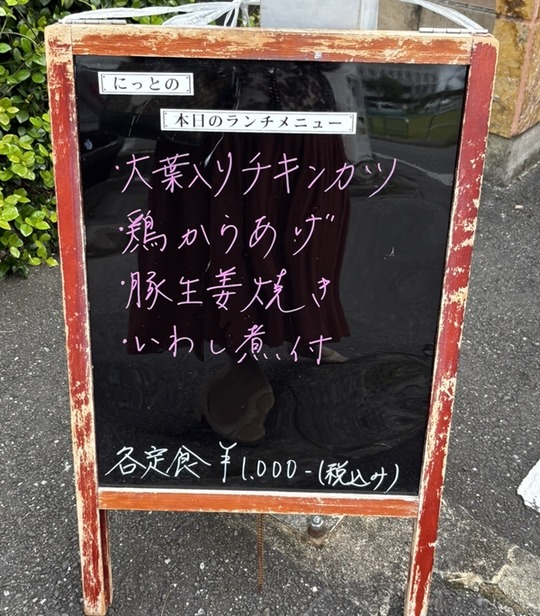 にっとの
本日のランチメニュー
・大葉入りチキンカツ
・鶏からあげ
・豚生姜焼き
・いわし煮付
各定食 ¥1,000-(税込み)